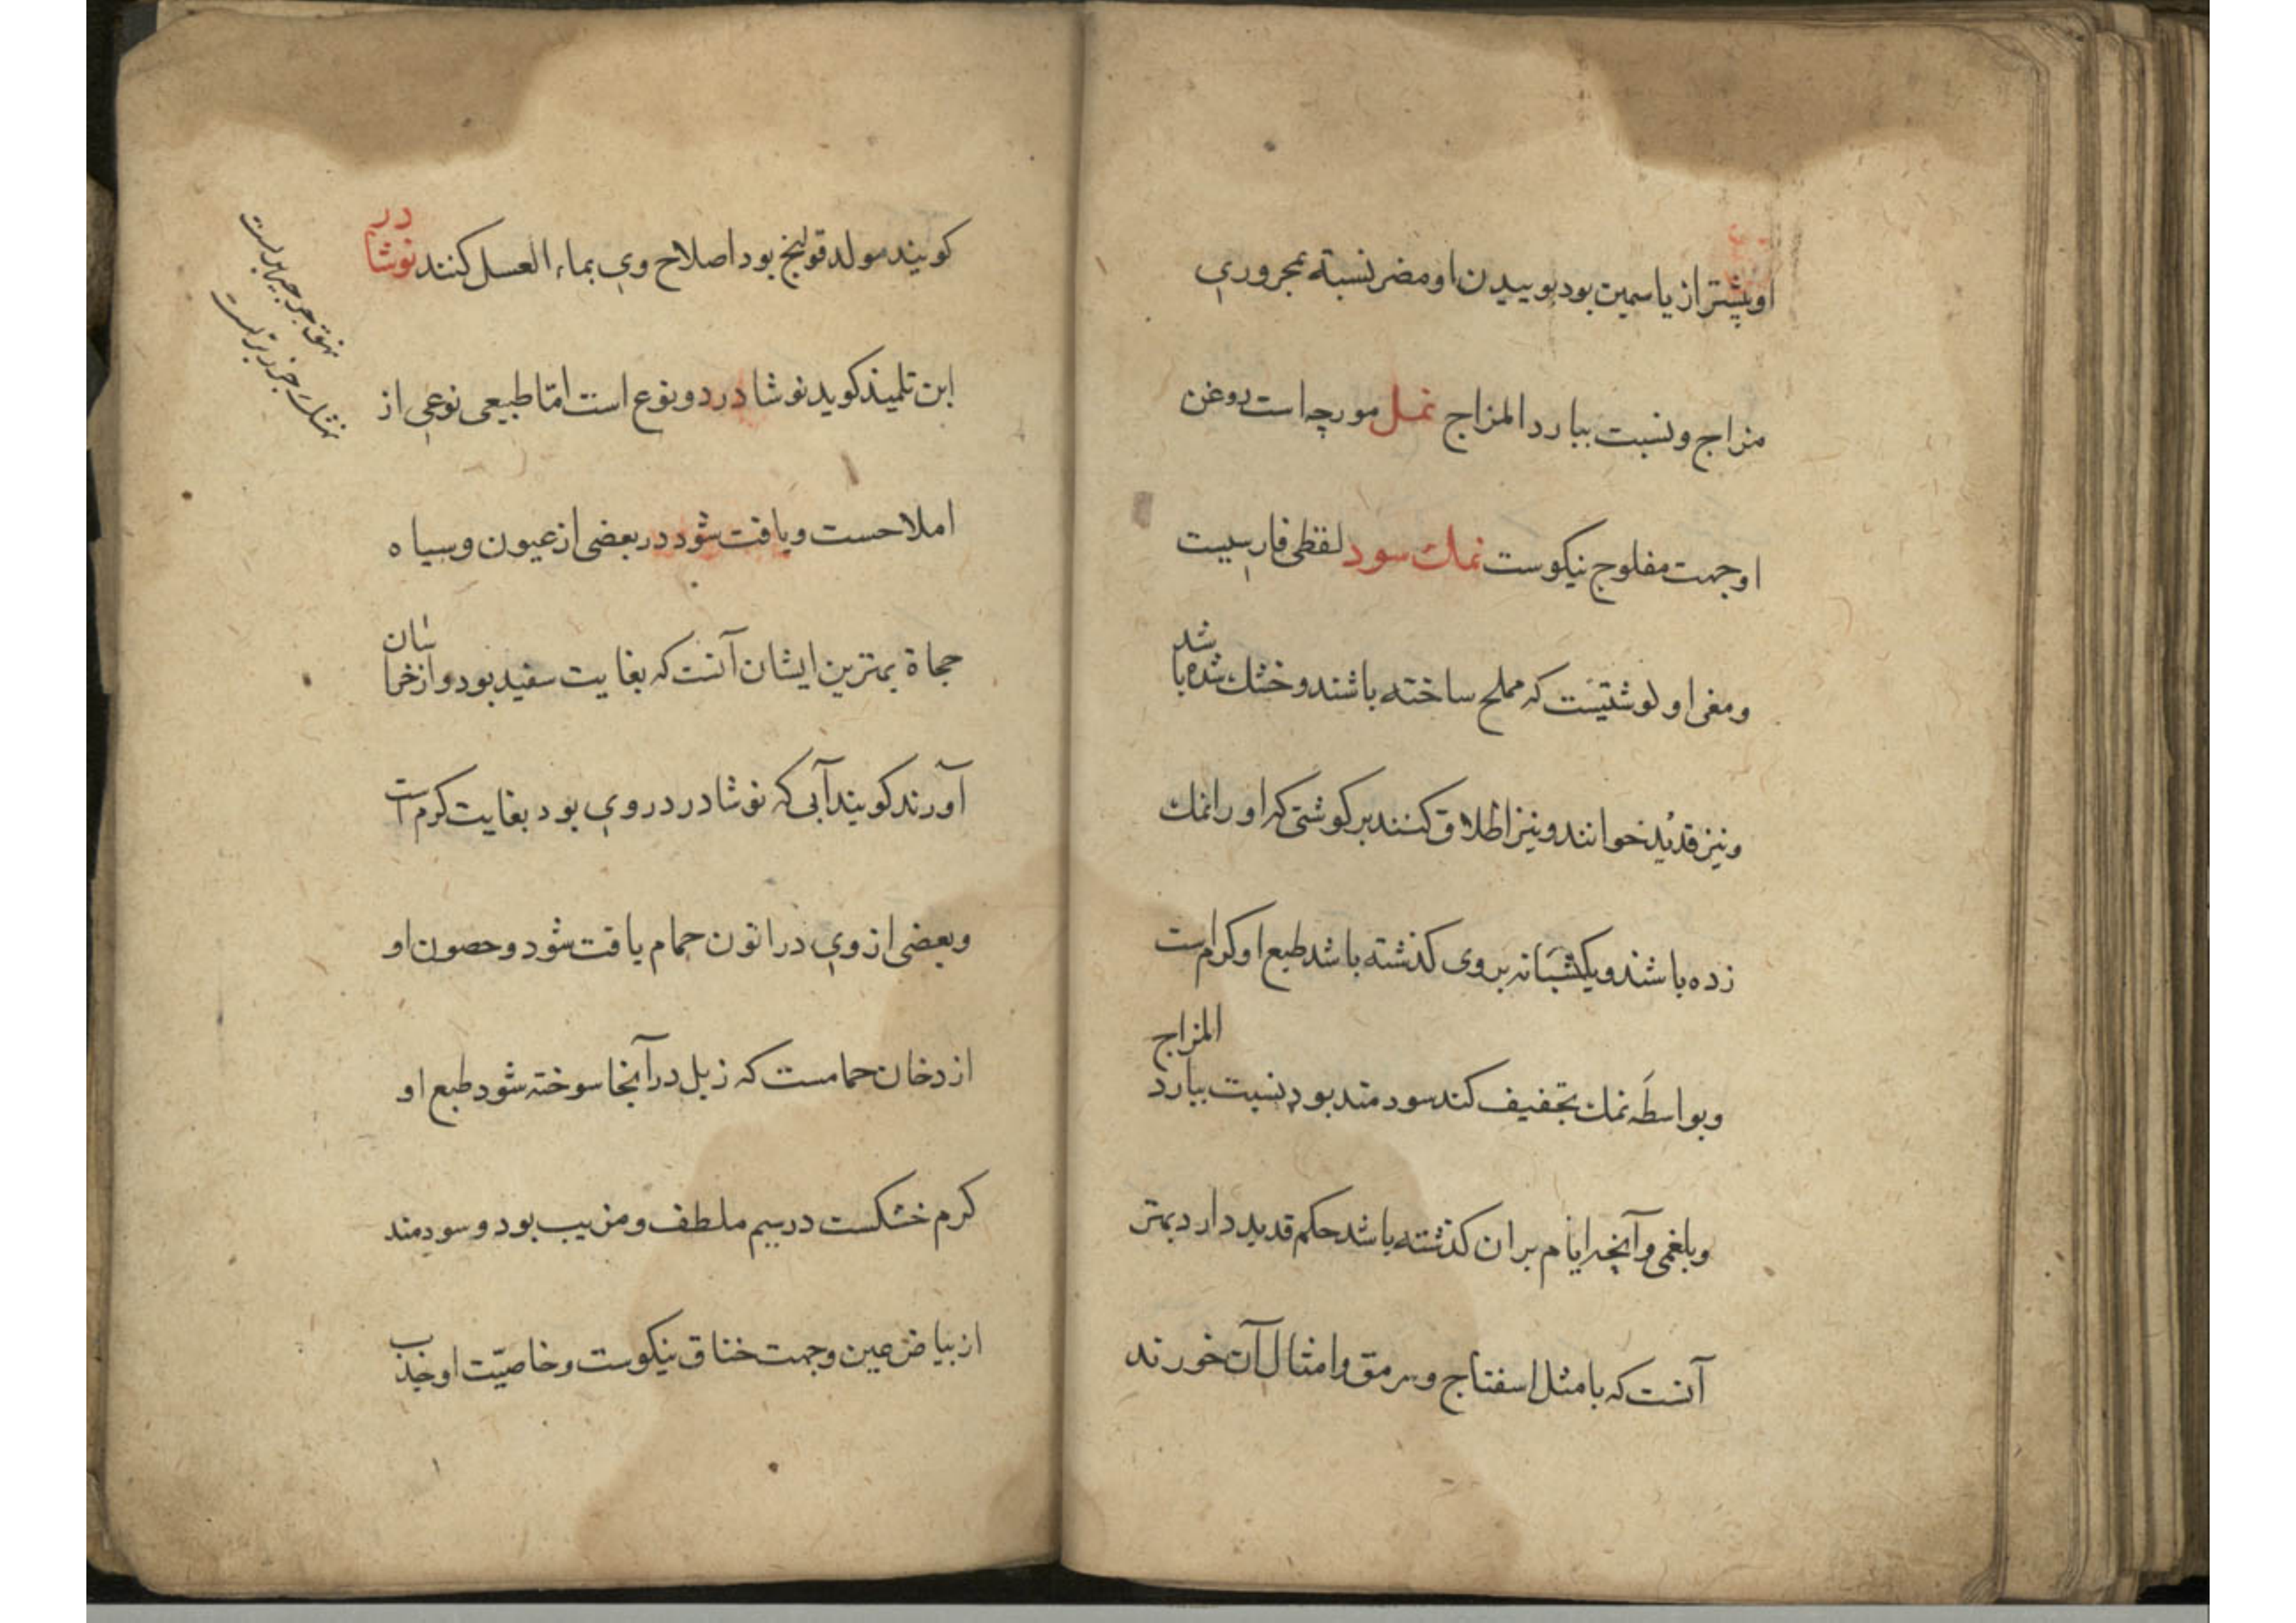 او پیشتر از یاسمین بود بوییدن او مضر نسبة بمحروری
مزاج و نسبت ببارد المزاج نمل مورچه است روغن
او جهت مفلوج نیکوست نمك سود لفظی فارسیست
و معنی او گوشتیست که مملح ساخته باشند و خشك شده با شد
و نیز قدید خوانند و نیز اطلاق کنند بر کوشتی که او را نمك
زده باشند و یکشبانه بر وی کذشته باشد طبع او کرم است
و بواسطه نمك تجفیف کند سودمند بود بنسبت ببارد المزاج
و بلغمی و آنچه ایام بران کذشته باشد حکم قدید دارد بهتر
آنست که با مثل اسفناج و سرمق و امثال آن خورند
کویند مولد قولنج بود اصلاح وی بماء العسل کنند نوشادر
ابن تلمیذ کوید نوشادر دو نوع است امّا طبیعی نوعی از
املاحست و یافت شود در بعضی از عیون و سیاه
حجاة بهترین ایشان آنست که بغایت سفید بود و از خراسان
آورند کویند آبی که نوشادر در وی بود بغایت کرم است
و بعضی از وی در اتون حمام یافت شود و حصون او
از دخان حمامست که زبل در آنجا سوخته شود طبع او
کرم خشکست در سیم ملطف و مزیب بود و سودمند
از بیاض عین و جهت خناق نیکوست و خاصیّت او جذب
نهق جرجیر برّیست
نهشك جزر برّیست